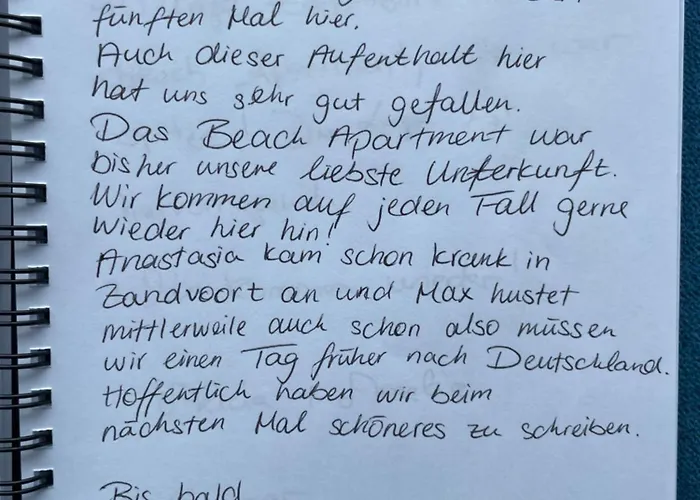 fünften Mal hier.
Auch dieser Aufenthalt hier
hat uns sehr gut gefallen.
Das Beach Apartment war
bisher unsere liebste Unterkunft.
Wir kommen auf jeden Fall gerne
wieder hier hin!
Anastasia kam schon krank in
Zandvoort an und Max hustet
mittlerweile auch schon also müssen
wir einen Tag früher nach Deutschland.
Hoffentlich haben wir beim
nächsten Mal schöneres zu schreiben.
Bis bald